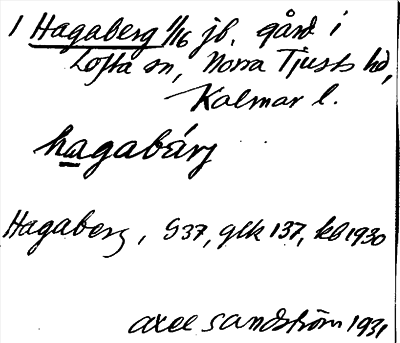 1 Hagaberg 1/16 jb. gård i
Lofta sn, Norra Tjusts hd,
Kalmar l.
hagabárj
Hagaberg, S37, glk 137, kb 1930
Axel Sandström 1931